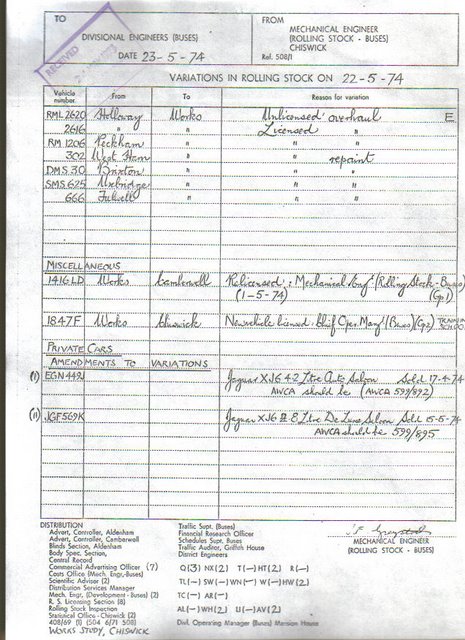 TO
FROM
DIVISIONAL ENGINEERS (BUSES)
MECHANICAL ENGINEER
(ROLLING STOCK - BUSES)
CHISWICK
RECEIVED
DATE 23-5-74
Ref. 508/1
VARIATIONS IN ROLLING STOCK ON 22-5-74
Vehicle number From To Reason for variation
RML 2620 Holloway Works Unlicensed overhaul E
2616 " " Licensed "
RM 1206 Peckham " " "
302 West Ham " " repaint
DMS 30 Brixton " " "
SMS 625 Uxbridge " " "
666 Fulwell " " "
MISCELLANEOUS
1416LD Works Camberwell Relicensed: Mechanical Engr (Rolling Stock - Buses)
(1-5-74) (Gp1)
1847F Works Chiswick New vehicle licensed: Chief Oper. Mangr (Buses) (Gp2) TRAINING SCHOOL
PRIVATE CARS
AMENDMENTS TO VARIATIONS
(I) EGN 449J Jaguar XJ6 4.2 Litre Auto Saloon Sold 17-4-74
AWCA should be (AWCA 599/892)
(II) JGF569K Jaguar XJ6 2.8 Litre De Luxe Saloon Sold 15-5-74
AWCA should be 599/895
DISTRIBUTION
Advert. Controller, Aldenham
Advert. Controller, Camberwell
Blinds Section, Aldenham
Body Spec. Section,
Central Record
Commercial Advertising Officer (7)
Costs Office (Mech. Engr.-Buses)
Scientific Advisor (2)
Distribution Services Manager
Mech. Engr. (Development - Buses) (2)
R. S. Licensing Section (8)
Rolling Stock Inspection
Statistical Office - Chiswick (2)
408/69 (1) (504 6/71 508)
WORKS STUDY, CHISWICK
Traffic Supt. (Buses)
Financial Research Officer
Schedules Supt. Buses
Traffic Auditor, Griffith House
District Engineers
Q(3) NX(2) T(—) HT(2) R(—)
TL(—) SW(—) WN(—) W(—) HW(2)
TC(—) AR(—)
AL(—) WH(2) U(—) AV(2)
Divl. Operating Manager (Buses) Mansion House
MECHANICAL ENGINEER
(ROLLING STOCK - BUSES)